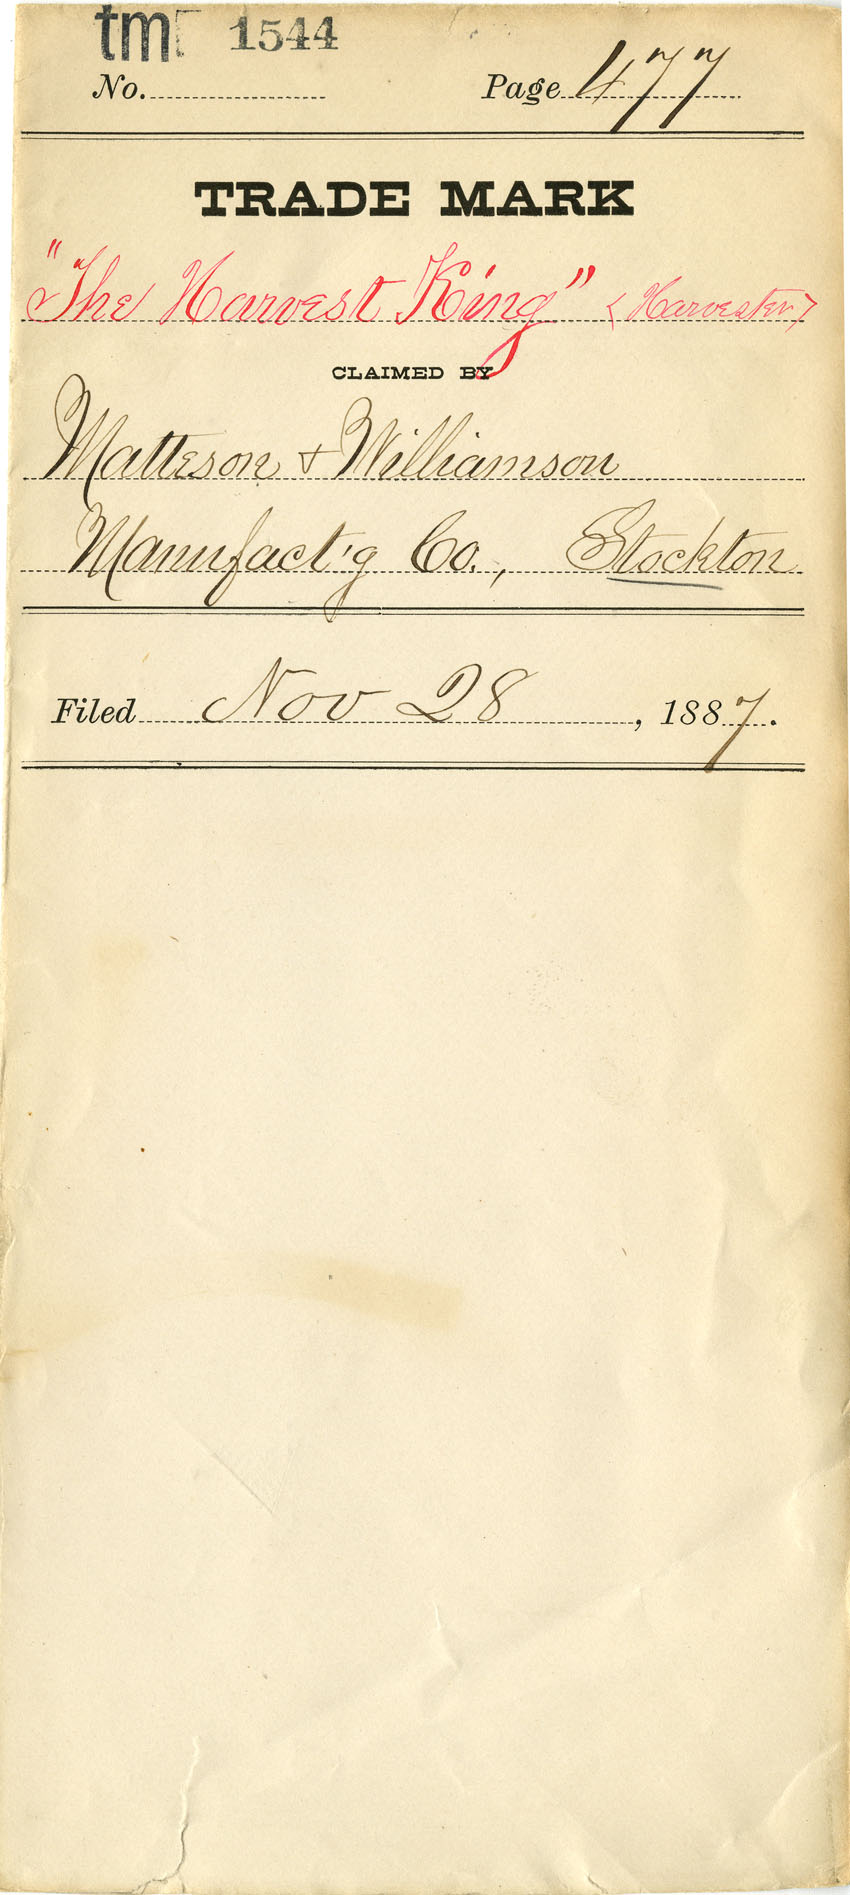 tm 1544
No. Page 477
TRADE MARK
"The Harvest King" <Harvester>
CLAIMED BY
Matteson & Williamson
Manufact'g Co., Stockton
Filed Nov 28, 1887.